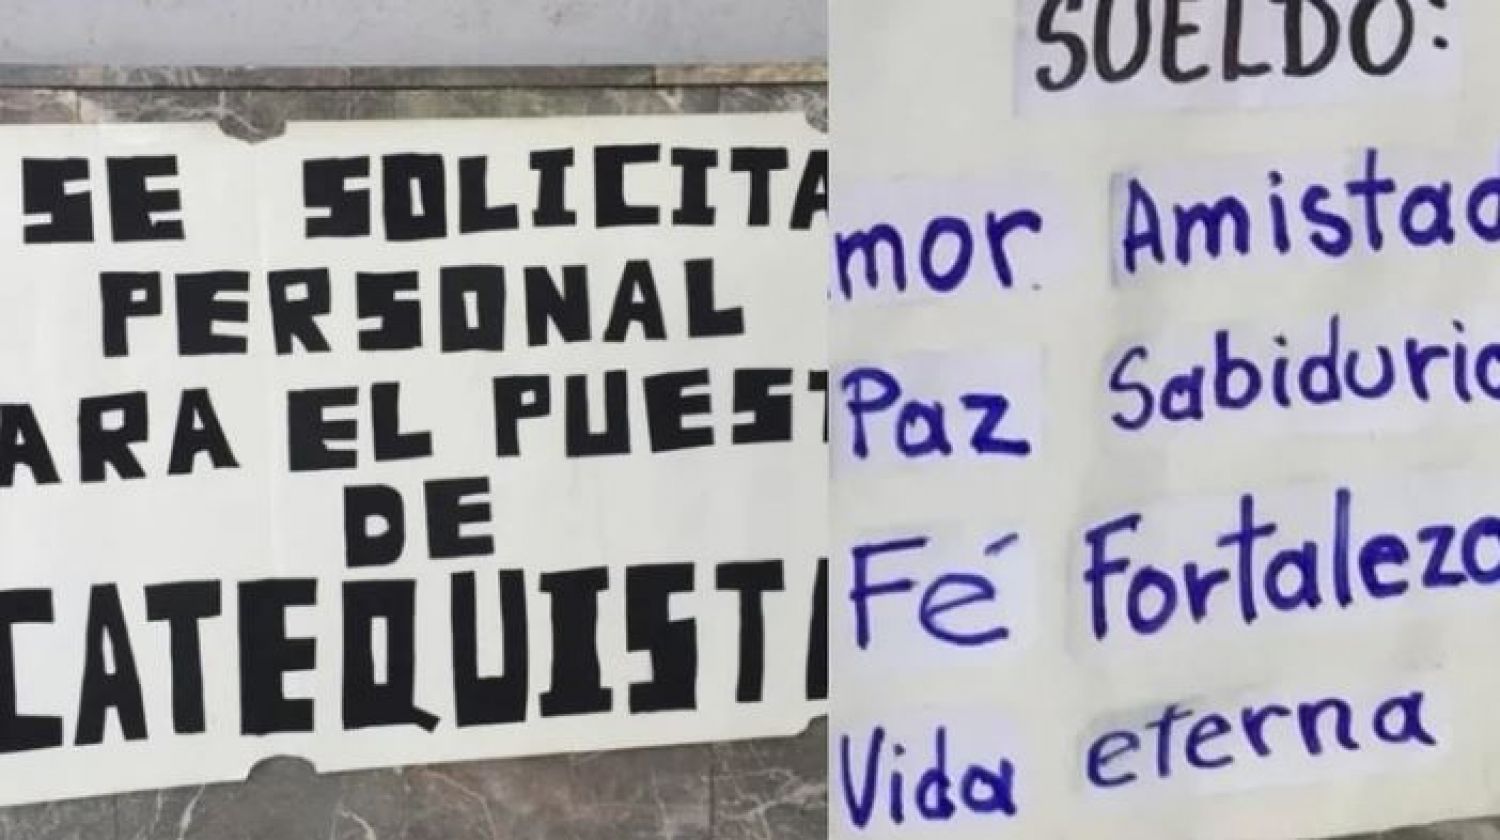 SE SOLICITA
PERSONAL
ARA EL PUEST
DE
CATEQUISTA
SUELDO:
mor Amistad
Paz Sabiduria
Fé Fortaleza
Vida eterna